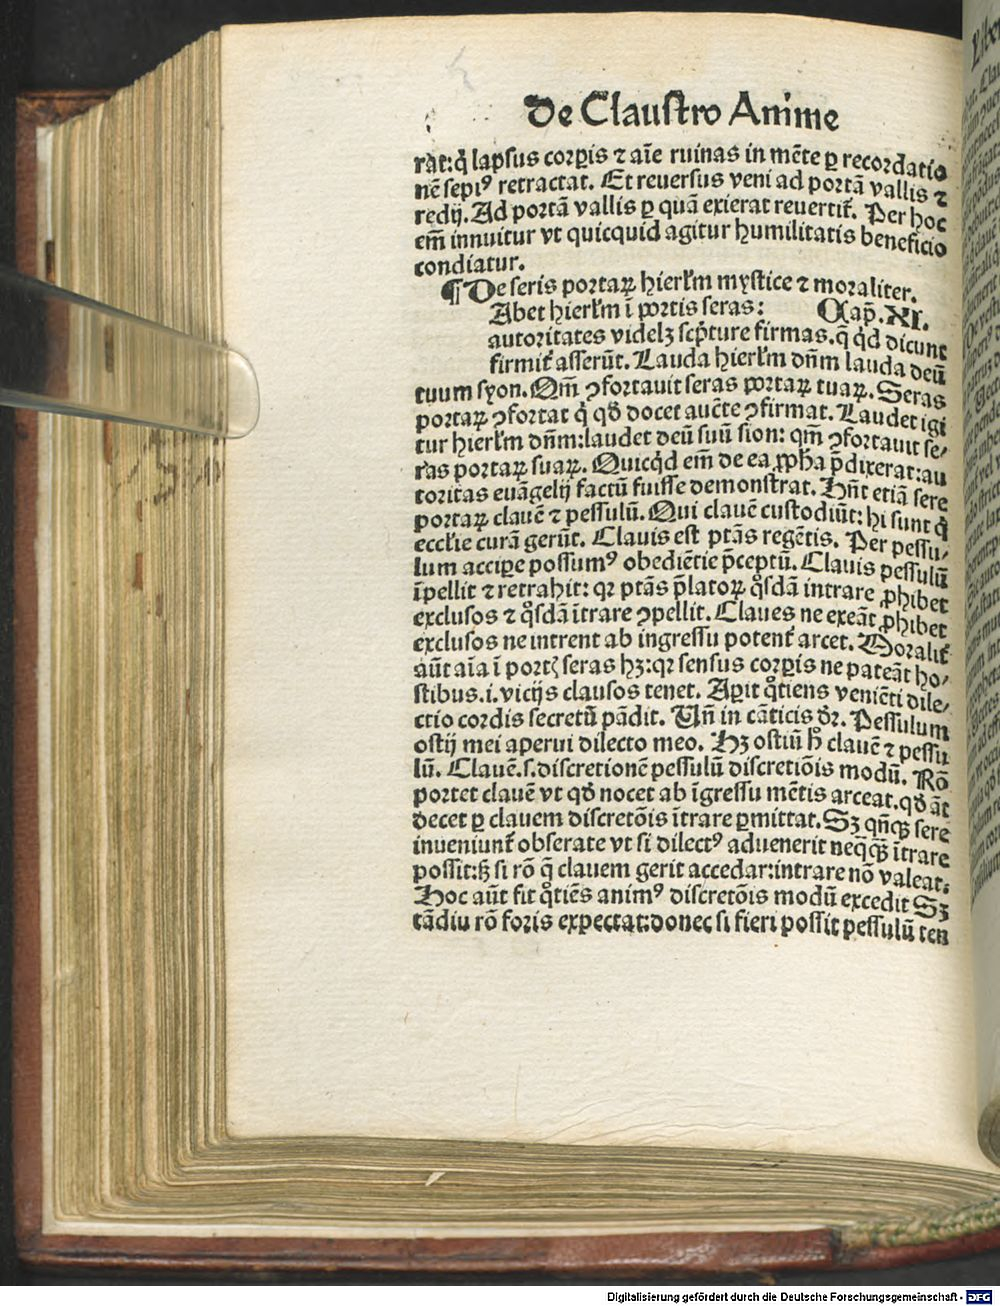 De Claustro Anime
rat:q̇ lapsus corꝑis ⁊ aīe ruinas in mēte ꝑ recordatio
nē sepiꝰ retractat. Et reuersus veni ad portā vallis ⁊
redij. Ad portā vallis ꝑ quā exierat reuertit᷑. Per hoc
em̄ innuitur vt quicquid agitur humilitatis beneficio
condiatur.
¶ De seris portaꝝ hierl̄m mystice ⁊ moraliter.
Abet hierl̄m ī portis seras: Cap̄. XI.
autoritates videlꝫ scp̄ture firmas. q̄ qd̓ dicunt
firmit᷑ asserūt. Lauda hierl̄m dn̄m lauda deū
tuum syon. Qm̄ ꝯfortauit seras portaꝝ tuaꝝ. Seras
portaꝝ ꝯfortat q̇ qd̓ docet aucte ꝯfirmat. Laudet igi
tur hierl̄m dn̄m: laudet deū suū sion: qm̄ ꝯfortauit se⸗
ras portaꝝ suaꝝ. Quicq̇d em̄ de ea ꝓph̄a p̄dixerat: au
toritas euāgelij factū fuisse demonstrat. Hn̄t etiā sere
portaꝝ clauē ⁊ pessulū. Qui clauē custodiūt: hi sunt q̇
eccl̄ie curā gerūt. Clauis est ptās regētis. Per pessu⸗
lum accipe possumꝰ obediētie p̄ceptū. Clauis pessulū
īpellit ⁊ retrahit: qꝛ ptās p̄latoꝝ qͦsdā intrare ꝓhibet
exclusos ⁊ qͦsdā ītrare ꝯpellit. Claues ne exeāt ꝓhibet
exclusos ne intrent ab ingressu potent᷑ arcet. Moralit᷑
aūt aīa ī portꝭ seras hꝫ: qꝛ sensus corꝑis ne pateāt ho⸗
stibus .i. vicijs clausos tenet. Aꝑit qͦtiens veniēti dile⸗
ctio cordis secretū pādit. Un̄ in cāticis dr̄. Pessulum
ostij mei aperui dilecto meo. Hꝫ ostiū h̄ clauē ⁊ pessu
lū. Clauē .s. discretionē pessulū discretiōis modū. Rō
portet clauē vt qd̓ nocet ab īgressu mētis arceat. qd̓ āt
decet ꝑ clauem discretōis ītrare ꝑmittat. Sꝫ qn̄qꝫ sere
inueniunt᷑ obserate vt si dilectꝰ aduenerit neq̄qꝫ ītrare
possit: sꝫ si rō q̄ clauem gerit accedar: intrare nō valeat.
Hoc aūt fit qͦtiēs animꝰ discretōis modū excedit Sꝫ
tādiu rō foris expectat: donec si fieri possit pessulū ten
Digitalisierung gefördert durch die Deutsche Forschungsgemeinschaft - DFG